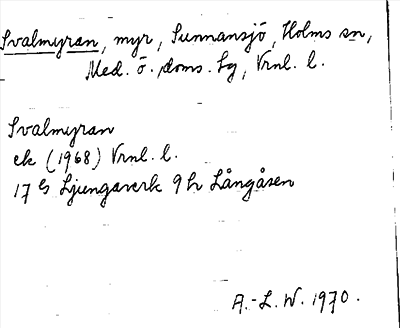 Svalmyran, myr, Sunnansjö, Holms sn,
Med. ö. doms. sg, Vrnl. l.
Svalmyran
ek (1968) Vrnl. l.
17 G Ljungaverk 9h Långåsen
A.-L. W. 1970.